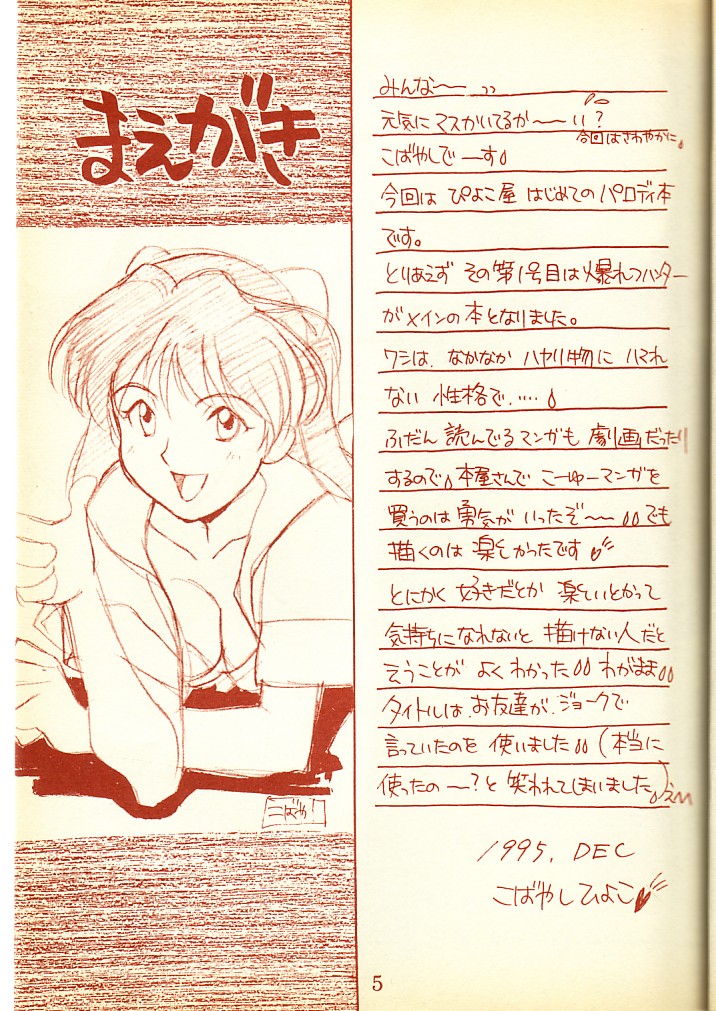 まえがき
みんな〜〜
元気に マスかいてるか〜〜い?
今回はさわやかに
こばやしでーす
今回は ぴよこ屋 はじめての パロディ本
です。
とりあえず その第1号目は 爆れつハンター
がメインの本となりました。
ワシは、なかなか ハヤリ物に ハマれ
ない 性格で.....
ふだん 読んでるマンガも 劇画だったり
するので 本屋さんで こーゆーマンガを
買うのは 勇気が いったぞ〜〜 でも
描くのは 楽しかったです
とにかく 好きだとか 楽しいとかって
気持ちになれないと 描けない人だと
そうことが よくわかった わがまま
タイトルは、お友達が、ジョークで
言っていたのを 使いました (本当に
使ったの〜?と 笑われてしまいました)
1995. DEC
こばやしひよこ
5